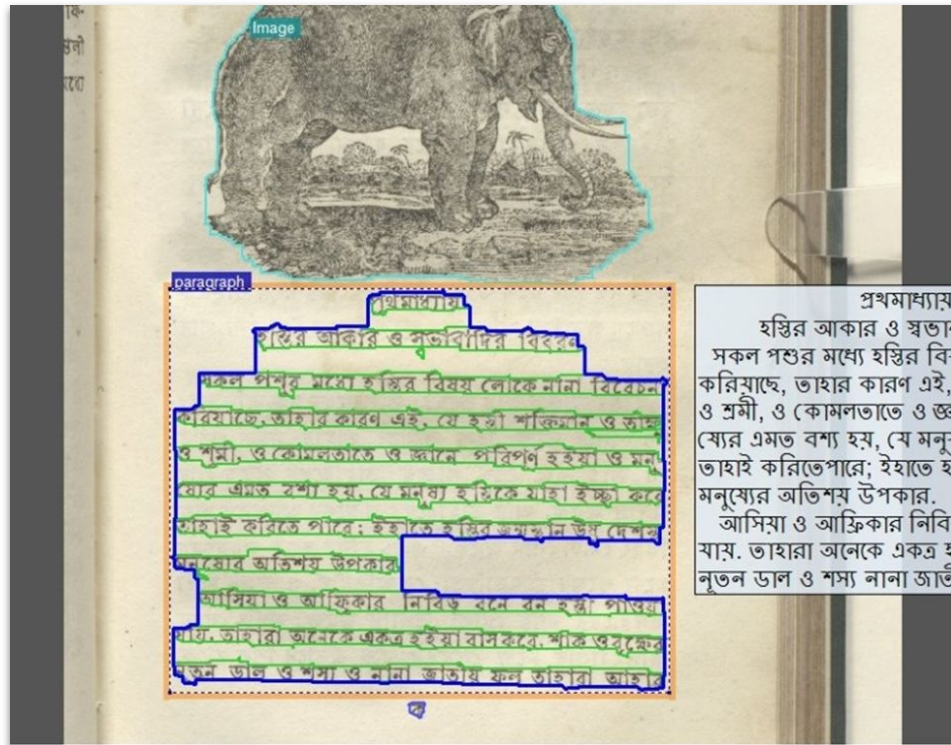 Image
paragraph
প্রথমাধ্যায়
হস্তির আকার ও স্বভাবাদির বিবরণ
সকল পশুর মধ্যে হস্তির বিষয় লোকে নানা বিবেচনা
করিয়াছে, তাহার কারণ এই, যে হস্তী শক্তিমান ও তীক্ষ্ণ
ও শ্রমী, ও কোমলতাতে ও জ্ঞানে পরিপূর্ণ হইয়া ও মনু
ষ্যের এমত বশ্য হয়, যে মনুষ্য হস্তিকে যাহা ইচ্ছা করে
তাহাই করিতে পারে; ইহাতে হস্তির জন্মস্থান উষ্ণ দেশস্থ
মনুষ্যের অতিশয় উপকার
আসিয়া ও আফ্রিকার নিবিড় বনে বন হস্তী পাওয়া
যায়. তাহারা অনেকে একত্র হইয়া বাস করে. শাক ও বৃক্ষের
নূতন ডাল ও শস্য ও নানা জাতীয় ফল তাহারা আহার
প্রথমাধ্যায়
হস্তির আকার ও স্বভা
সকল পশুর মধ্যে হস্তির বি
করিয়াছে, তাহার কারণ এই,
ও শ্রমী, ও কোমলতাতে ও জ্ঞ
ষ্যের এমত বশ্য হয়, যে মনু
তাহাই করিতেপারে; ইহাতে হ
মনুষ্যের অতিশয় উপকার.
আসিয়া ও আফ্রিকার নিবি
যায়. তাহারা অনেকে একত্র হ
নূতন ডাল ও শস্য নানা জাতী